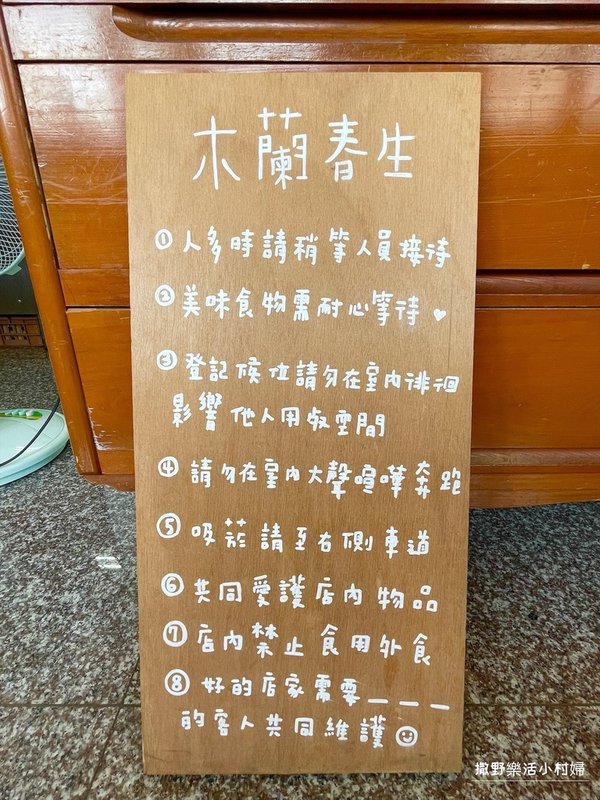 木蘭春生
① 人多時請稍等人員接待
② 美味食物需耐心等待 ♥
③ 登記候位請勿在室內徘徊
影響他人用餐空間
④ 請勿在室內大聲喧嘩奔跑
⑤ 吸菸請至右側車道
⑥ 共同愛護店內物品
⑦ 店內禁止食用外食
⑧ 好的店家需要_ _ _
的客人共同維護☺
撒野樂活小村婦